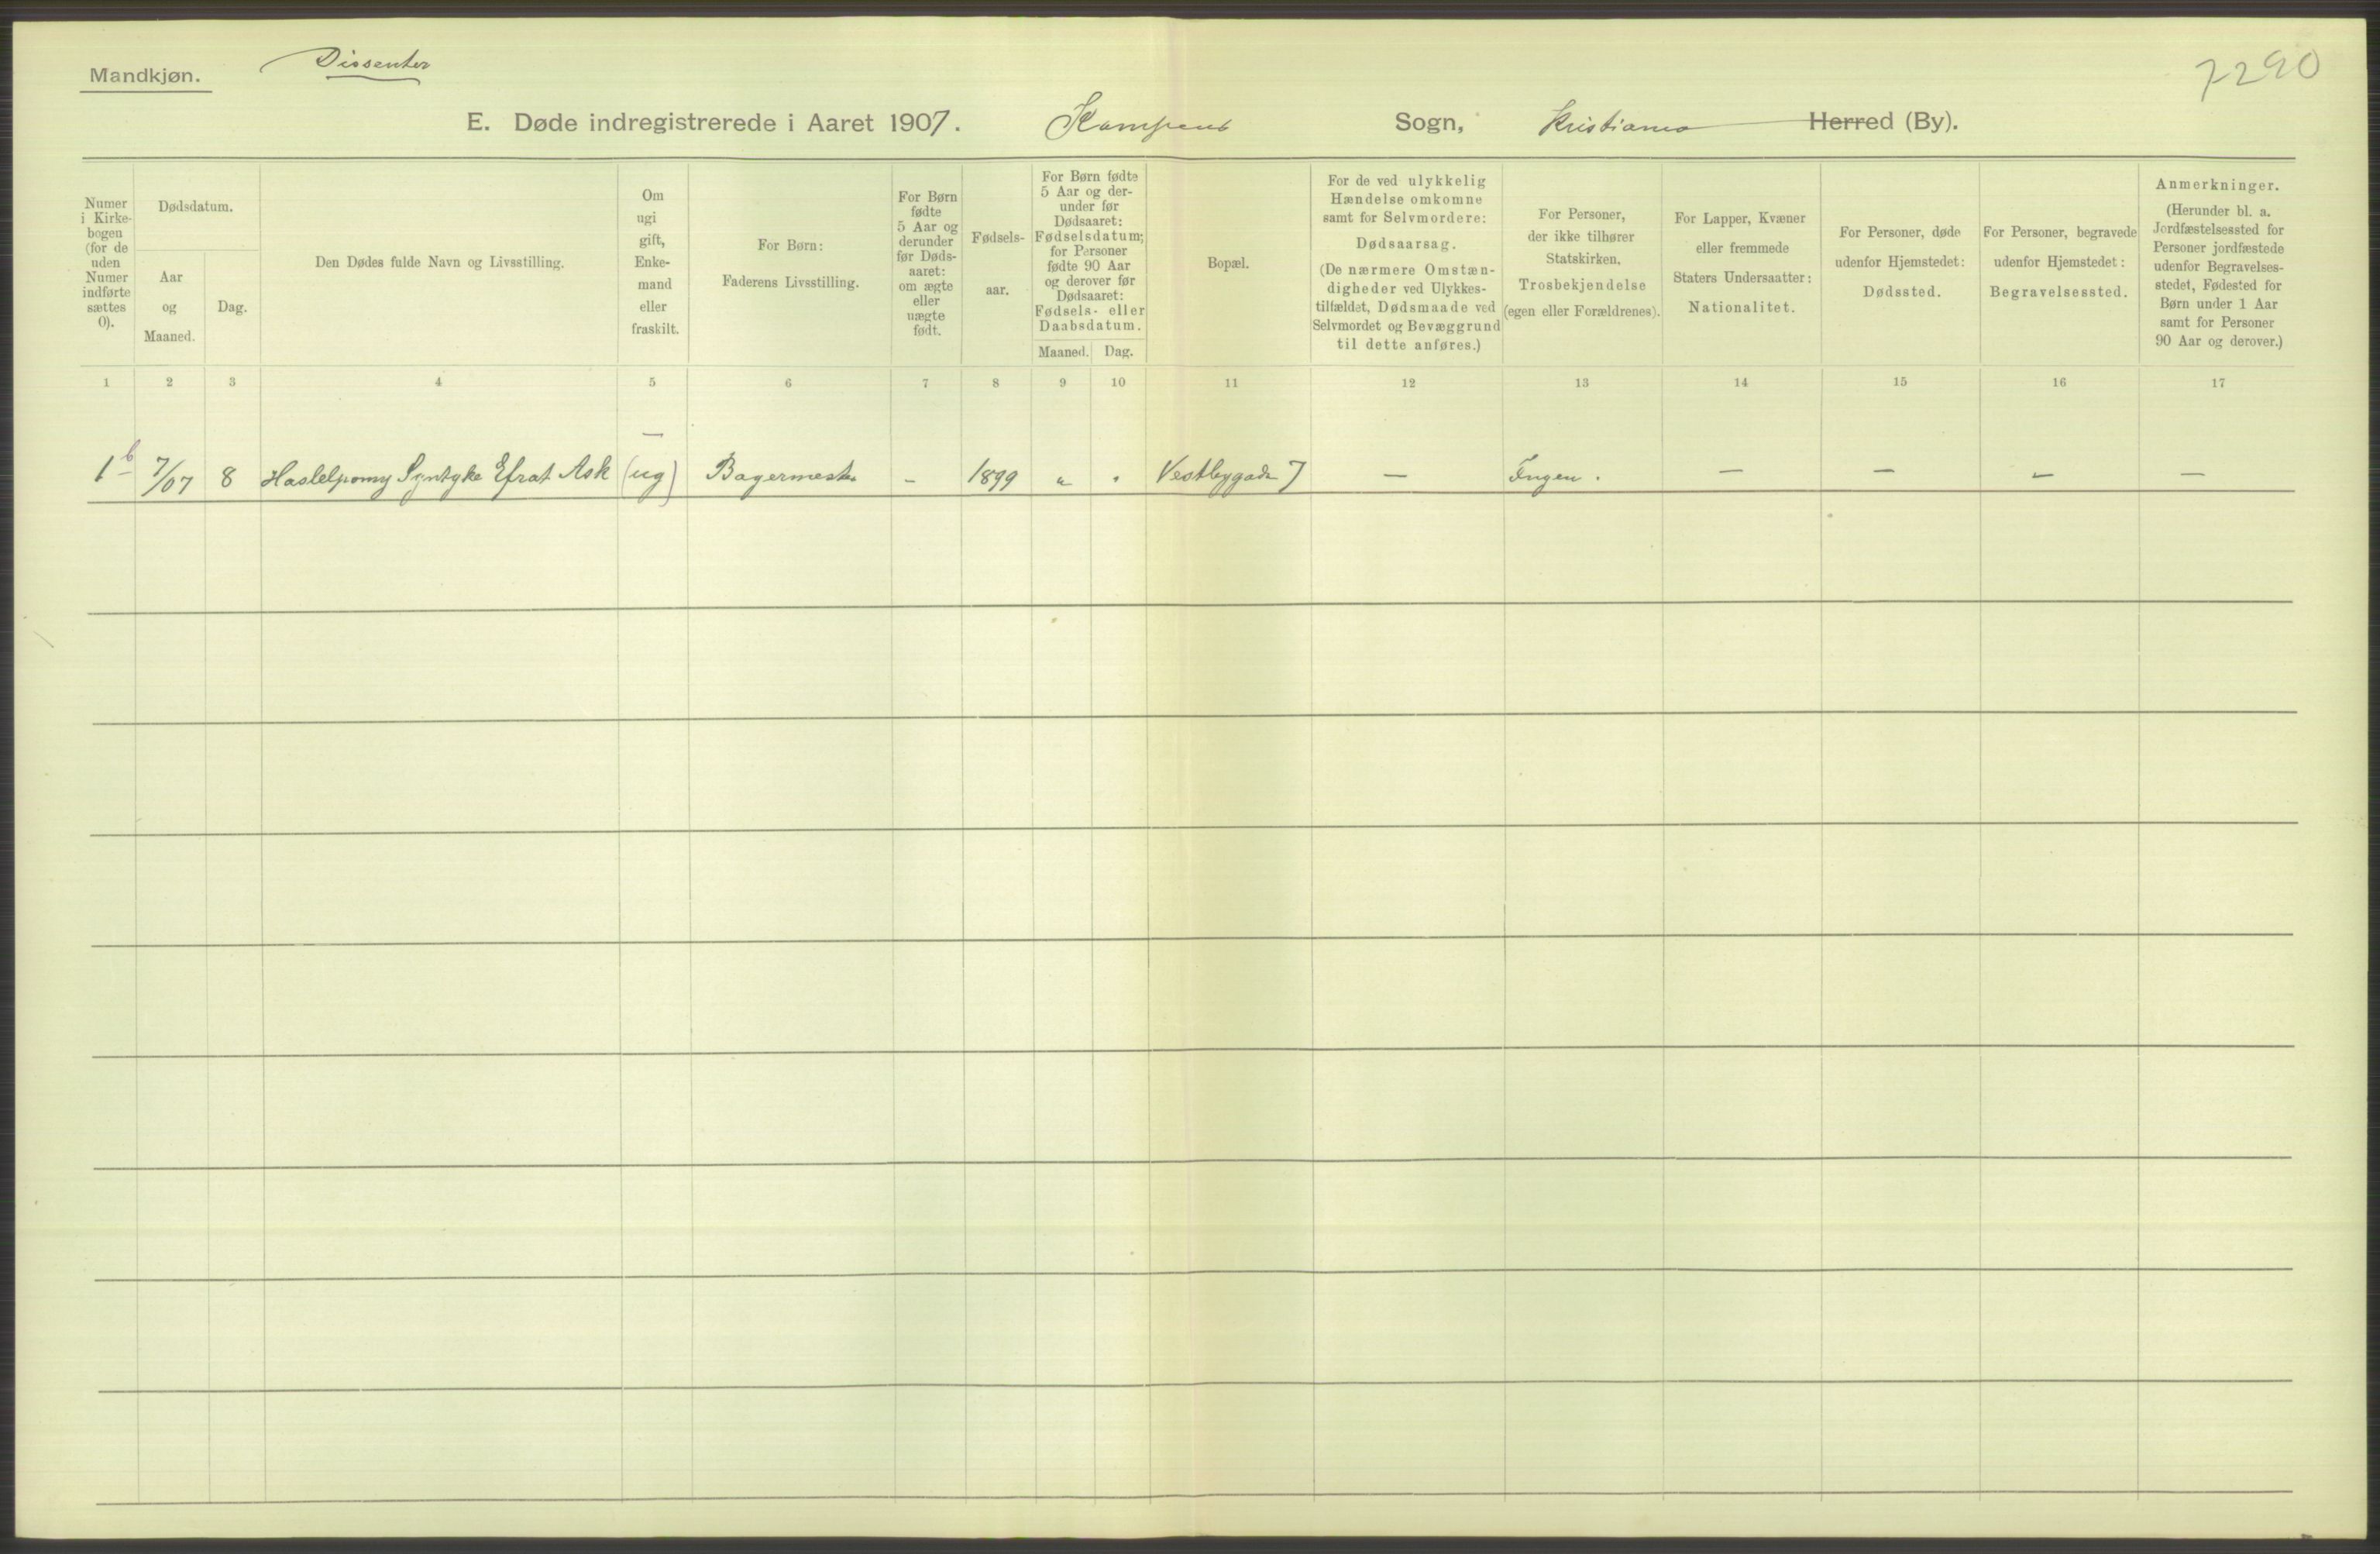 Mandkjøn.
Dissenter
7290
E. Døde indregistrerede i Aaret 1907. Kampens Sogn, Kristiania Herred (By).
Numer i Kirkebogen (for de uden Numer indførte sættes 0).
Dødsdatum.
Aar og Maaned.
Dag.
Den Dødes fulde Navn og Livsstilling.
Om ugi gift, Enkemand eller fraskilt.
For Børn:
Faderens Livsstilling.
For Børn fødte 5 Aar og derunder før Dødsaaret: om ægte eller uægte født.
Fødselsaar.
For Børn fødte 5 Aar og derunder før Dødsaaret: Fødselsdatum; for Personer fødte 90 Aar og derover før Dødsaaret: Fødsels- eller Daabsdatum.
Maaned. Dag.
Bopæl.
For de ved ulykkelig Hændelse omkomne samt for Selvmordere:
Dødsaarsag.
(De nærmere Omstændigheder ved Ulykkestilfældet, Dødsmaade ved Selvmordet og Bevæggrund til dette anføres.)
For Personer, der ikke tilhører Statskirken.
Trosbekjendelse
(egen eller Forældrenes).
For Lapper, Kvæner eller fremmede Staters Undersaatter:
Nationalitet.
For Personer, døde udenfor Hjemstedet:
Dødssted.
For Personer, begravede udenfor Hjemstedet:
Begravelsessted.
Anmerkninger.
(Herunder bl. a. Jordfæstelsessted for Personer jordfæstede udenfor Begravelsesstedet, Fødested for Børn under 1 Aar samt for Personer 90 Aar og derover.)
1 2 3 4 5 6 7 8 9 10 11 12 13 14 15 16 17
1 b 7/07 8 Syntyke Efrat Ask (ug) Bagermester – 1899 " " Vestbygade 7 – Ingen. – – – –